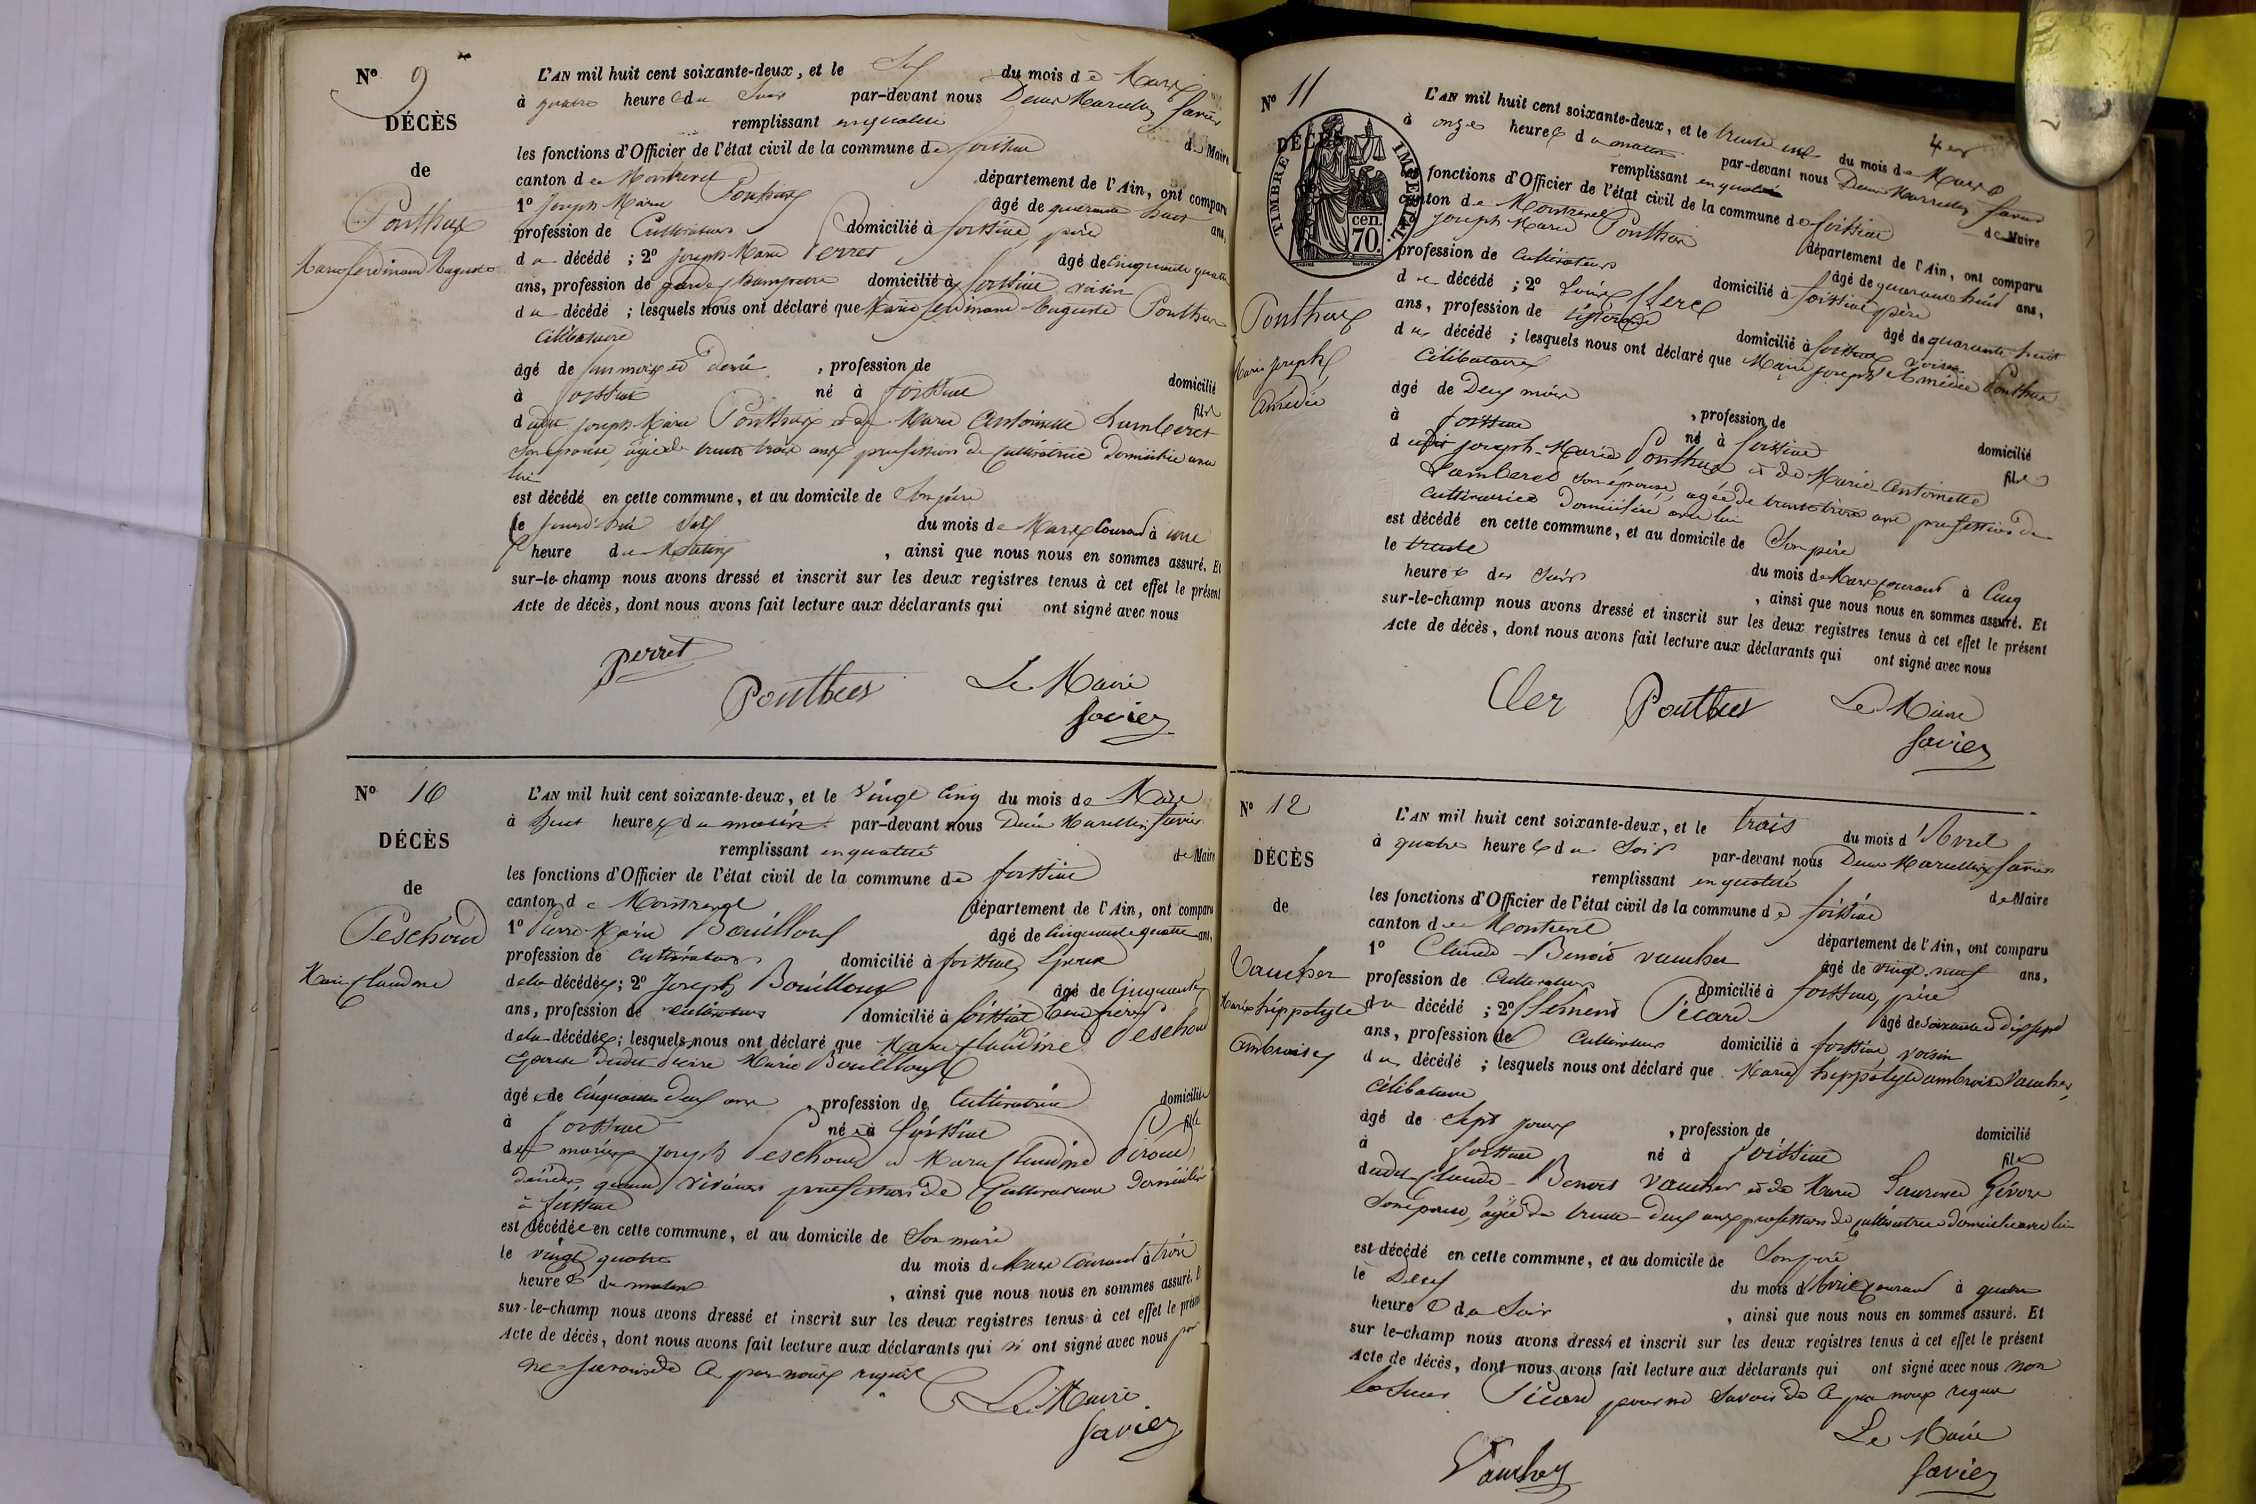 N° 9
DÉCÈS
de
Ponthus
Marie ferdinand Auguste
L'AN mil huit cent soixante-deux, et le du mois de Mars
à quatre heures du soir par-devant nous Denis Marcellin Favier
remplissant en qualité de Maire
les fonctions d'Officier de l'état civil de la commune de foissiat
canton de Montrevel département de l'Ain, ont comparu
1° Joseph Marie Ponthus âgé de quarante huit ans,
profession de Cultivateur domicilié à foissiat, père
du décédé ; 2° Joseph Marie Perret âgé de Cinquante quatre
ans, profession de garde champêtre domicilié à foissiat voisin
du décédé ; lesquels nous ont déclaré que Marie ferdinand Auguste Ponthus
célibataire
âgé de un mois et demi , profession de domicilié
à foissiat né à foissiat fils
dudit Joseph Marie Ponthus et de Marie Antoinette Lamberet
son épouse, âgée de trente trois ans profession de cultivatrice domiciliée avec
lui
est décédé en cette commune, et au domicile de Son père
le jourd'hui du mois de Mars Courant à une
heure du Matin , ainsi que nous nous en sommes assuré. Et
sur-le-champ nous avons dressé et inscrit sur les deux registres tenus à cet effet le présent
Acte de décès, dont nous avons fait lecture aux déclarants qui ont signé avec nous
Perret
Ponthus
Le Maire
Favier
N° 10
DÉCÈS
de
Peschoud
Marie Claudine
L'AN mil huit cent soixante-deux, et le vingt cinq du mois de Mars
à huit heures du matin par-devant nous Denis Marcellin Favier
remplissant en qualité de Maire
les fonctions d'Officier de l'état civil de la commune de foissiat
canton de Montrevel département de l'Ain, ont comparu
1° Pierre Marie Bouilloux âgé de Cinquante quatre ans,
profession de cultivateur domicilié à foissiat, époux
de la décédée ; 2° Joseph Bouilloux âgé de Cinquante
ans, profession de cultivateur domicilié à foissiat beau frère
de la décédée ; lesquels nous ont déclaré que Marie Claudine Peschoud
épouse dudit Pierre Marie Bouilloux
âgée de Cinquante deux ans , profession de Cultivatrice domiciliée
à foissiat née à foissiat fille
des mariés Joseph Peschoud et Marie Claudine Piroud
décédés, quand vivaient profession de Cultivateurs domiciliés
à foissiat
est décédée en cette commune, et au domicile de Son mari
le vingt quatre du mois de Mars Courant à trois
heures du matin , ainsi que nous nous en sommes assuré. Et
sur-le-champ nous avons dressé et inscrit sur les deux registres tenus à cet effet le présent
Acte de décès, dont nous avons fait lecture aux déclarants qui n' ont signé avec nous pour
ne savoir de ce par nous requis
Le Maire
Favier
4
N° 11
DÉCÈS
TIMBRE IMPÉRIAL
70 cen.
Ponthus
Marie Joseph
Amédée
L'AN mil huit cent soixante-deux, et le trente un du mois de Mars
à onze heures du matin par-devant nous Denis Marcellin Favier
remplissant en qualité de Maire
fonctions d'Officier de l'état civil de la commune de foissiat
canton de Montrevel département de l'Ain, ont comparu
Joseph Marie Ponthus âgé de quarante huit ans,
profession de Cultivateur domicilié à foissiat père
du décédé ; 2° Louis Clerc âgé de quarante huit
ans, profession de domicilié à foissiat voisin
du décédé ; lesquels nous ont déclaré que Marie Joseph Amédée Ponthus
Célibataire
âgé de Deux mois , profession de domicilié
à foissiat né à foissiat fils
dudit Joseph-Marie Ponthus et de Marie-Antoinette
Lamberet son épouse, âgée de trente trois ans profession de
cultivatrice domiciliée avec lui
est décédé en cette commune, et au domicile de Son père
le trente du mois de Mars courant à Cinq
heures du soir , ainsi que nous nous en sommes assuré. Et
sur-le-champ nous avons dressé et inscrit sur les deux registres tenus à cet effet le présent
Acte de décès, dont nous avons fait lecture aux déclarants qui ont signé avec nous
Cler Ponthus
Le Maire
Favier
N° 12
DÉCÈS
de
Vaucher
Marie hippolyte
Ambroise
L'AN mil huit cent soixante-deux, et le trois du mois d'Avril
à quatre heures du Soir par-devant nous Denis Marcellin Favier
remplissant en qualité de Maire
les fonctions d'Officier de l'état civil de la commune de foissiat
canton de Montrevel département de l'Ain, ont comparu
1° Claude-Benoit Vaucher âgé de vingt-neuf ans,
profession de Cultivateur domicilié à foissiat, père
du décédé ; 2° Clément Picard âgé de soixante et dix sept
ans, profession de Cultivateur domicilié à foissiat, voisin
du décédé ; lesquels nous ont déclaré que Marie hippolyte ambroise Vaucher,
Célibataire
âgé de Sept jours , profession de domicilié
à foissiat né à foissiat fils
dudit Claude-Benoit Vaucher et de Marie Laurence Gévore
Son épouse, âgée de trente-deux ans profession de cultivatrice domiciliée avec lui
est décédé en cette commune, et au domicile de Son père
le Deux du mois d'Avril courant à quatre
heures du Soir , ainsi que nous nous en sommes assuré. Et
sur le-champ nous avons dressé et inscrit sur les deux registres tenus à cet effet le présent
Acte de décès, dont nous avons fait lecture aux déclarants qui ont signé avec nous non
le sieur Picard pour ne savoir de ce par nous requis
Vaucher
Le Maire
Favier